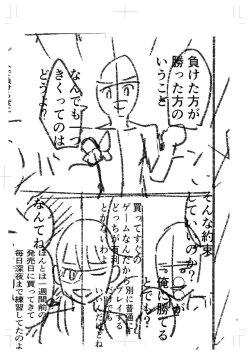 負けた方が
勝った方の
いうこと
なんでも一つ
きくってのは
どうよ？
そんな約束
していいのか？
俺に勝てる
とでも？
買ってすぐの
ゲームなんだから
どっちが有利
とかないわよ
別に普通に
プレイする
なんてね
ほんとは一週間前の
発売日に買ってきて
毎日深夜まで練習してたのよ